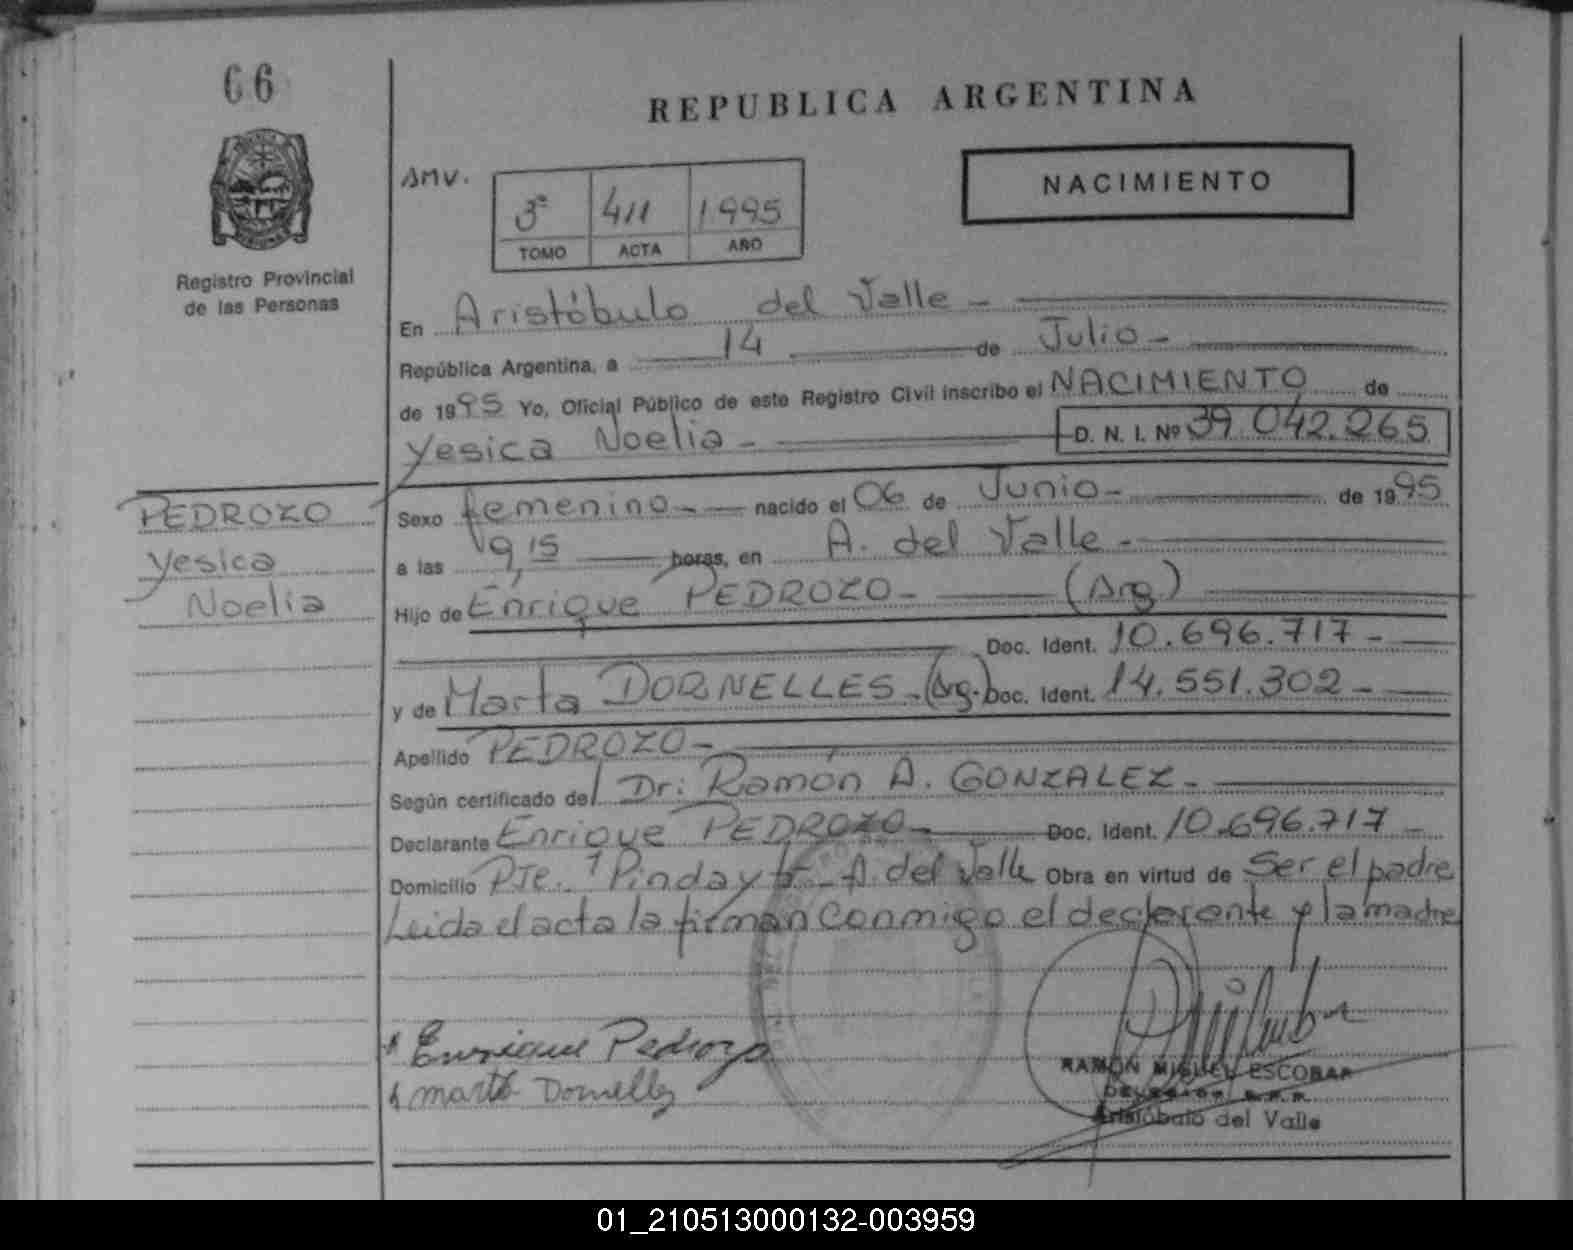 66
REPUBLICA ARGENTINA
AMV.
NACIMIENTO
3º 411 1995
TOMO ACTA AÑO
Registro Provincial
de las Personas
En Aristóbulo del Valle -
República Argentina, a 14 de Julio -
de 1995 Yo, Oficial Público de este Registro Civil inscribo el NACIMIENTO de
Yesica Noelia - D. N. I. Nº 39.042.265
PEDROZO
Yesica
Noelia
Sexo femenino - nacido el 06 de Junio - de 1995
a las 9,15 horas, en A. del Valle -
Hijo de Enrique PEDROZO - (Arg.)
Doc. Ident. 10.696.717 -
y de Marta DORNELLES - (Arg.) Doc. Ident. 14.551.302 -
Apellido PEDROZO -
Según certificado del Dr: Ramón A. GONZALEZ -
Declarante Enrique PEDROZO - Doc. Ident. 10.696.717 -
Domicilio Pje. Pindayty - A. del Valle Obra en virtud de Ser el padre
Leida el acta la firman conmigo el declarante y la madre
Enrique Pedrozo
Marta Dornelles
RAMON MIGUEL ESCOBAR
Aristóbulo del Valle
01_210513000132-003959